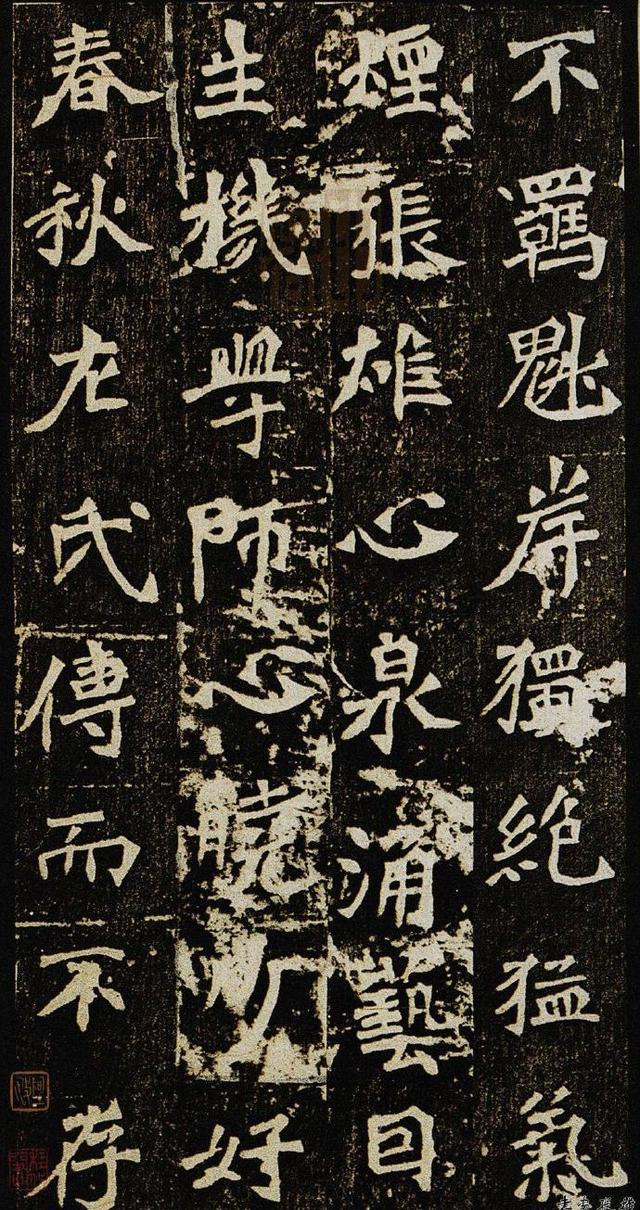 不羈魁岸獨絶猛氣
煙張雄心泉涌藝囙
生機學師心曉少好
春秋左氏傳而不存